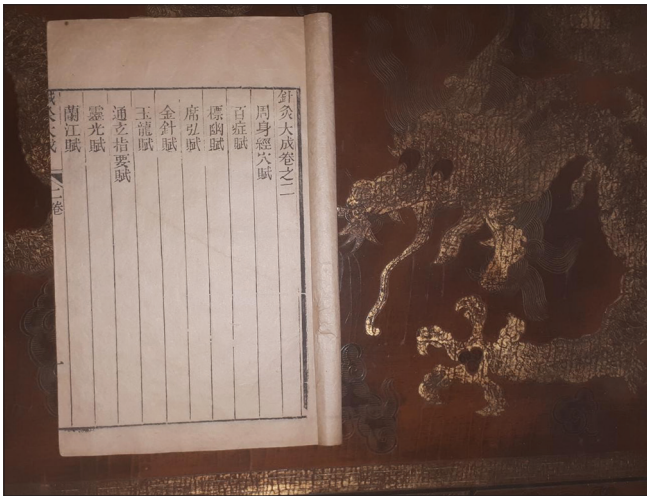 針灸大成卷之二
周身經穴賦
百症賦
標幽賦
席弘賦
金針賦
玉龍賦
通玄指要賦
靈光賦
蘭江賦
二卷